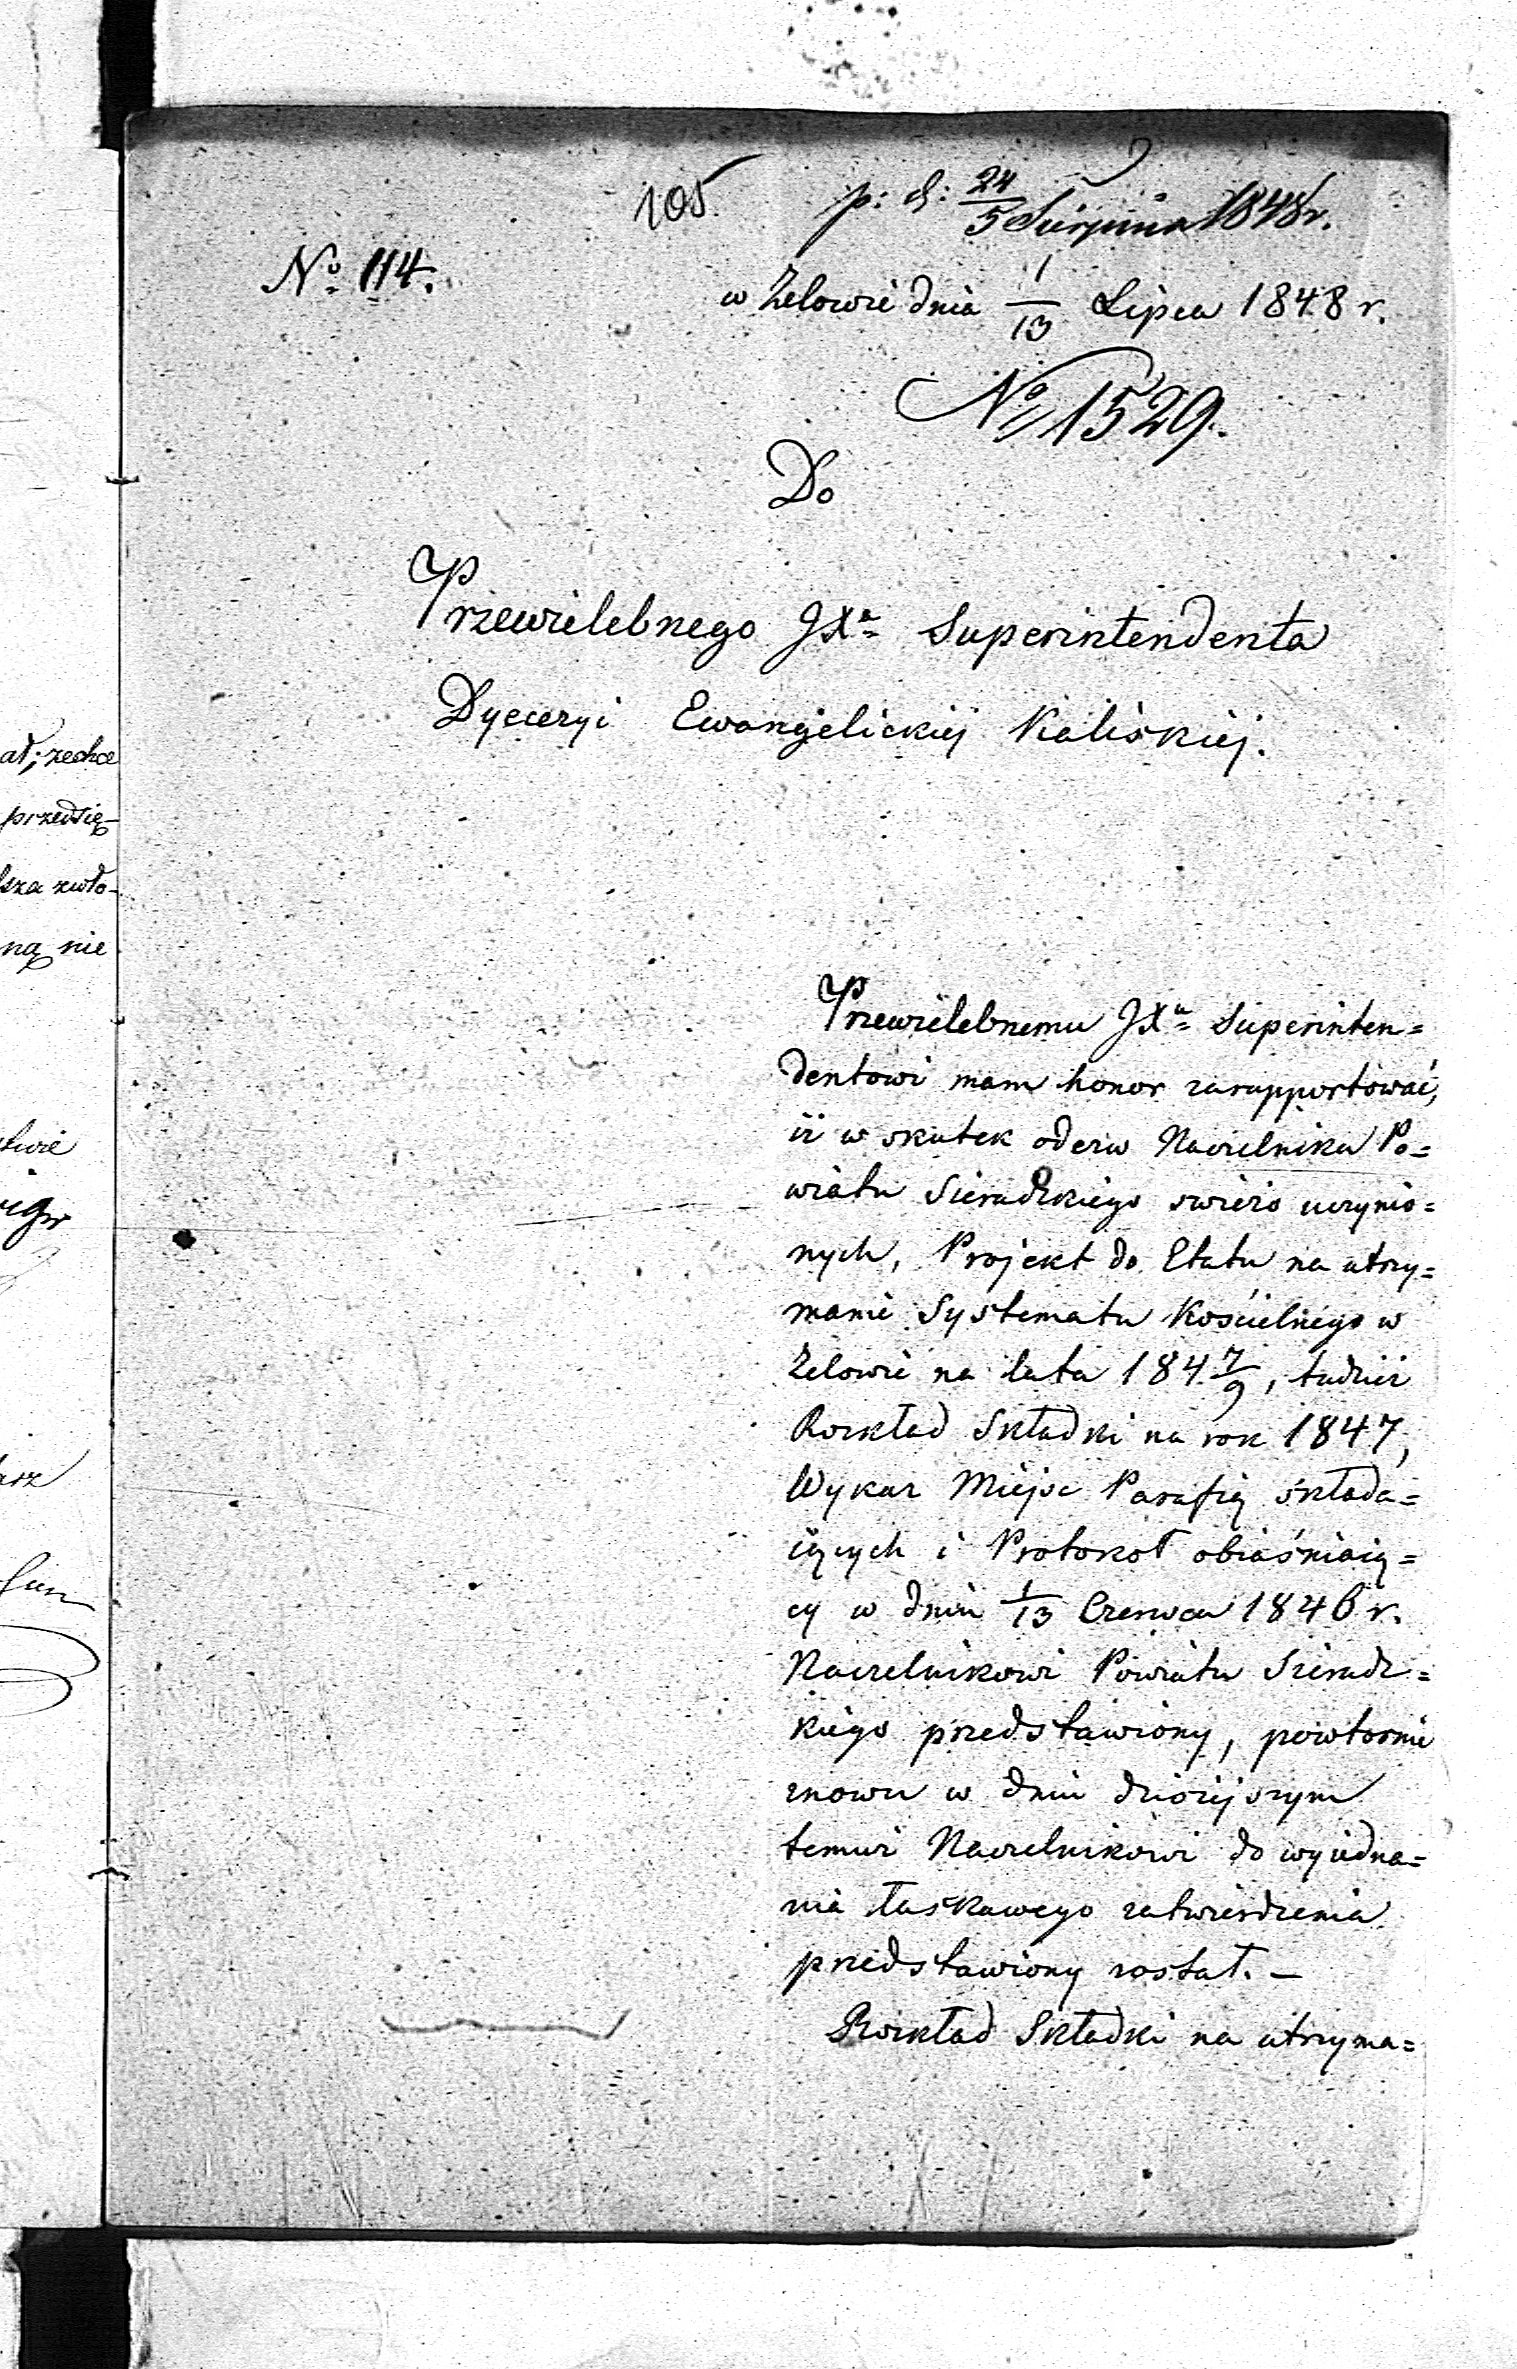 105
p: d: 24/5 Sierpnia 1848 r.
No 114.
w Zelowie dnia 1/13 Lipca 1848 r.
No 1529.
Do
Przewielebnego JXa Superintendenta
Dyecezyi Ewangelickiej Kaliskiej.
Przewielebnemu JXu Superinten=
dentowi mam honor zarapportować,
iż w skutek odezw Naczelnika Po=
wiatu Sieradzkiego swieżo uczynio=
nych, Projekt do Etatu na utrzy=
manie Systematu Kościelnego w
Zelowie na lata 1847/9, tudzież
Rozkład Składki na rok 1847,
Wykaz Miejsc Parafią składa=
iących i Protokoł obiaśniaią=
cy w dniu 1/13 Czerwca 1846 r.
Naczelnikowi Powiatu Sieradz=
kiego przedstawiony, powtornie
znowu w dniu dzisiejszym
temuż Naczelnikowi do wyiedna=
nia łaskawego zatwierdzenia
przedstawiony został. —
Rozkład Składki na utrzyma=
ał; zechce
przedsię-
sza zwło-
ną nie